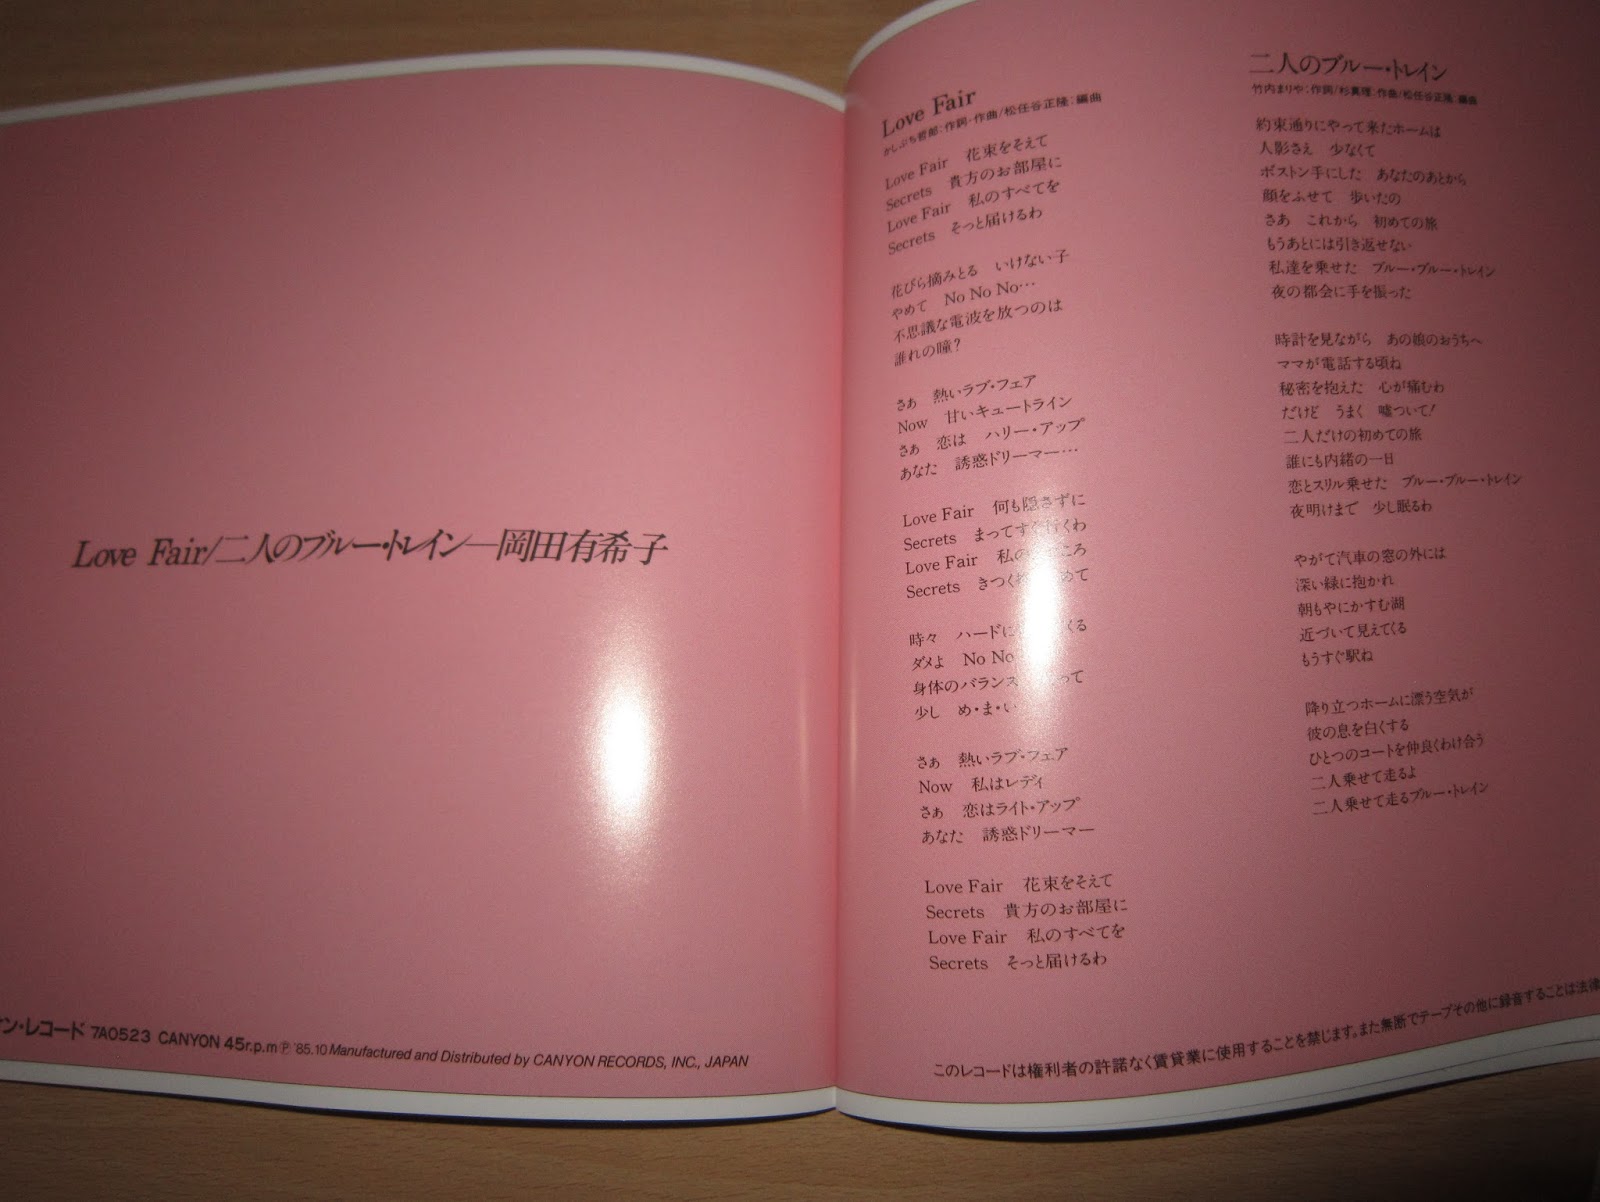 Love Fair/二人のブルー・トレイン—岡田有希子
ン・レコード 7A0523 CANYON 45r.p.m Ⓟ '85.10 Manufactured and Distributed by CANYON RECORDS, INC., JAPAN
Love Fair
かしぶち哲郎：作詞・作曲/松任谷正隆：編曲
Love Fair　花束をそえて
Secrets　貴方のお部屋に
Love Fair　私のすべてを
Secrets　そっと届けるわ
花びら摘みとる　いけない子
やめて　No No No…
不思議な電波を放つのは
誰れの瞳？
さぁ　熱いラブ・フェア
Now　甘いキュートライン
さぁ　恋は　ハリー・アップ
あなた　誘惑ドリーマー…
Love Fair　何も隠さずに
Secrets　まってすぐ行くわ
Love Fair　私の
Secrets　きつく
時々　ハードに
ダメよ　No No
身体のバランス
少し　め・ま・い
さぁ　熱いラブ・フェア
Now　私はレディ
さぁ　恋はライト・アップ
あなた　誘惑ドリーマー
Love Fair　花束をそえて
Secrets　貴方のお部屋に
Love Fair　私のすべてを
Secrets　そっと届けるわ
二人のブルー・トレイン
竹内まりや：作詞/杉真理：作曲/松任谷正隆：編曲
約束通りにやって来たホームは
人影さえ　少なくて
ボストン手にした　あなたのあとから
顔をふせて　歩いたの
さあ　これから　初めての旅
もうあとには引き返せない
私達を乗せた　ブルー・ブルー・トレイン
夜の都会に手を振った
時計を見ながら　あの娘のおうちへ
ママが電話する頃ね
秘密を抱えた　心が痛むわ
だけど　うまく　嘘ついて！
二人だけの初めての旅
誰にも内緒の一日
恋とスリル乗せた　ブルー・ブルー・トレイン
夜明けまで　少し眠るわ
やがて汽車の窓の外には
深い緑に抱かれ
朝もやにかすむ湖
近づいて見えてくる
もうすぐ駅ね
降り立つホームに漂う空気が
彼の息を白くする
ひとつのコートを仲良くわけ合う
二人乗せて走るよ
二人乗せて走るブルー・トレイン
このレコードは権利者の許諾なく賃貸業に使用することを禁じます。また無断でテープその他に録音することは法律